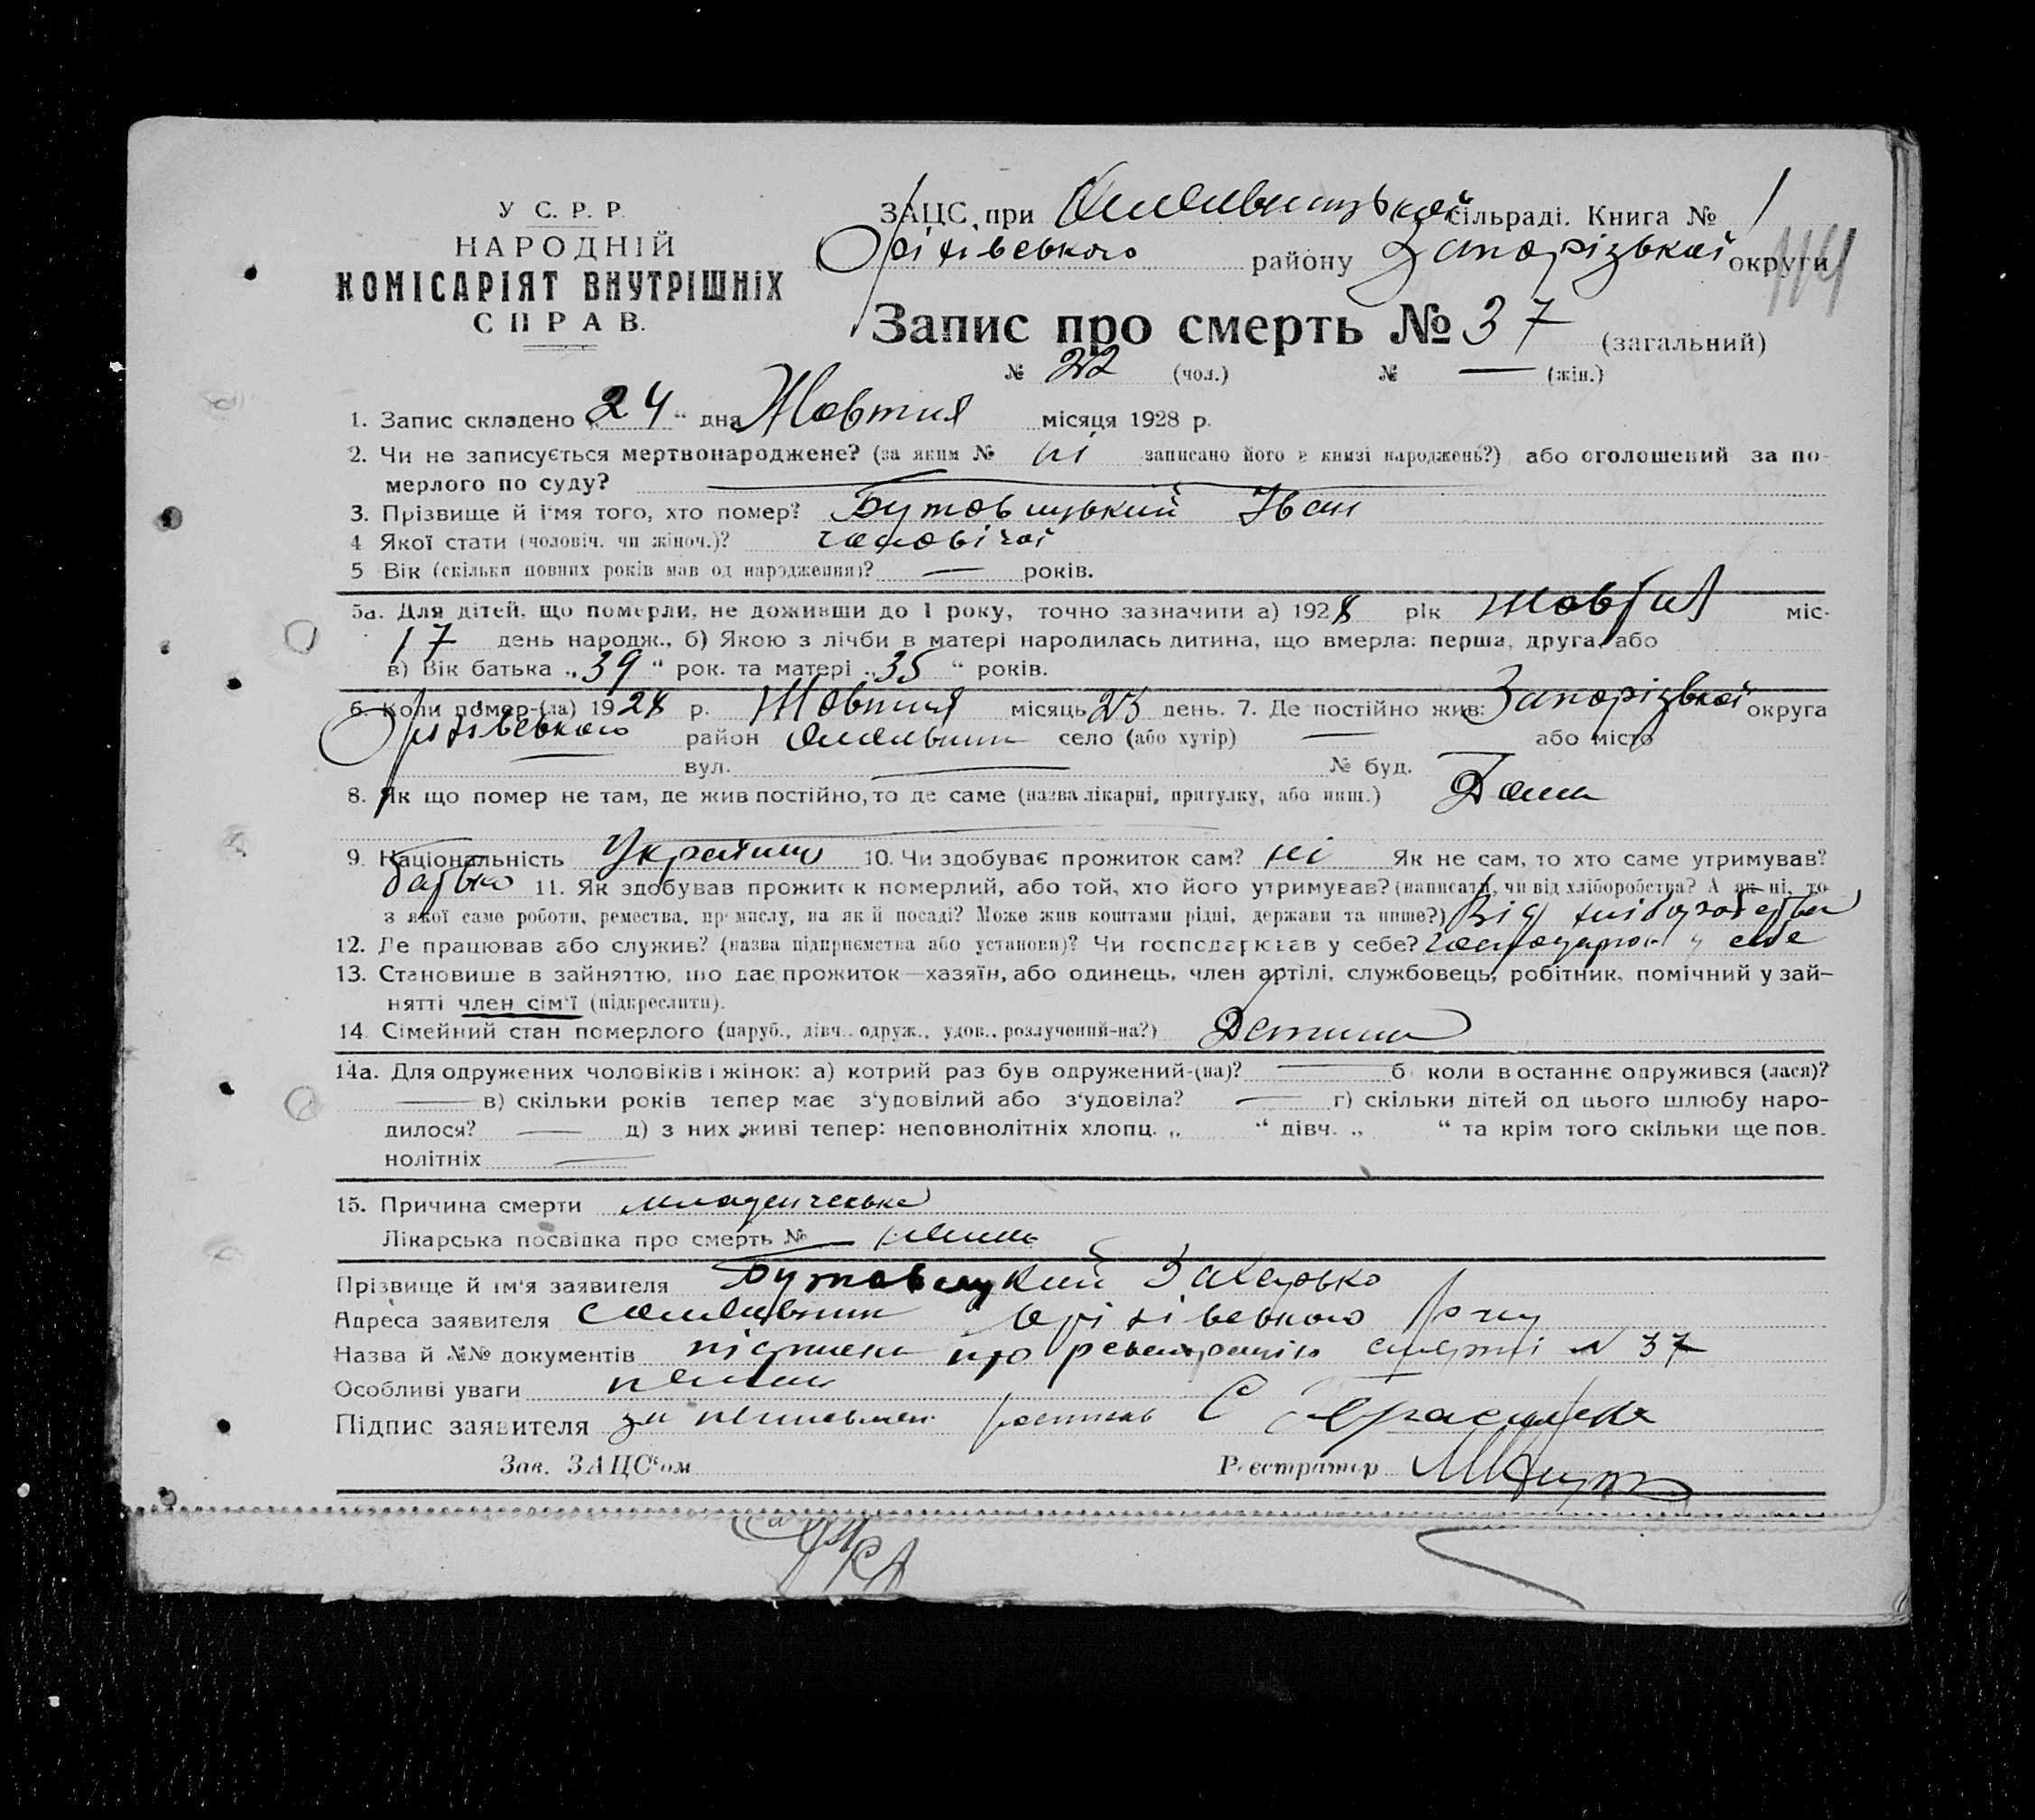 У С. Р. Р.
НАРОДНІЙ
КОМІСАРІЯТ ВНУТРІШНІХ
СПРАВ.
ЗАЦС при Омельницькой сільраді. Книга № 1
Оріхівського району Запорізької округи
114
Запис про смерть № 37 (загальний)
№ 22 (чол.) № — (жін.)
1. Запис складено „24“ дня Жовтня місяця 1928 р.
2. Чи не записується мертвонароджене? (за яким № ні записано його в книзі народжень?) або оголошений за по-
мерлого по суду? —
3. Прізвище й ім'я того, хто помер? Бутовицький Іван
4 Якої стати (чоловіч. чи жіноч.)? чоловічої
5 Вік (скільки повних років мав од народження)? — років.
5а. Для дітей, що померли, не доживши до 1 року, точно зазначити а) 1928 рік Жовтня міс.
17 день народж., б) Якою з лічби в матері народилась дитина, що вмерла: перша, друга, або
в) Вік батька „39“ рок. та матері „35“ років.
6. Коли помер-(ла) 1928 р. Жовтня місяць 23 день. 7. Де постійно жив: Запорізької округа
Оріхівського район Омельник село (або хутір) — або місто
— вул. — № буд. —
8. Як що помер не там, де жив постійно, то де саме (назва лікарні, притулку, або инш.) Дома
9. Національність Українець 10. Чи здобуває прожиток сам? ні Як не сам, то хто саме утримував?
батько 11. Як здобував прожиток померлий, або той, хто його утримував? (написати, чи від хліборобства? А як ні, то
з якої саме роботи, ремества, промислу, на якій посаді? Може жив коштами рідні, держави та инше?) Від хліборобства
12. Де працював або служив? (назва підприємства або установи)? Чи господарював у себе? господарював у себе
13. Становише в зайняттю, що дає прожиток—хазяїн, або одинець, член артілі, службовець, робітник, помічний у зай-
нятті член сім'ї (підкреслити).
14. Сімейний стан померлого (паруб., дівч. одруж., удов., розлучений-на?) Детина
14а. Для одружених чоловіків і жінок: а) котрий раз був одружений-(на)? — б) коли в останнє одружився (лася)?
— в) скільки років тепер має з'удовілий або з'удовіла? — г) скільки дітей од цього шлюбу наро-
дилося? — д) з них живі тепер: неповнолітніх хлопц. „ “ дівч. „ “ та крім того скільки ще пов.
нолітніх —
15. Причина смерти младенческа
Лікарська посвідка про смерть № — немає
Прізвище й ім'я заявителя Бутовицкий Захарько
Адреса заявителя с Омельник Оріхівського р-ну
Назва й №№ документів підписка про реєстрацію смерті N 37
Особливі уваги немає
Підпис заявителя за неписьмен. росписавс С
Зав. ЗАЦС'ом Реєстратор